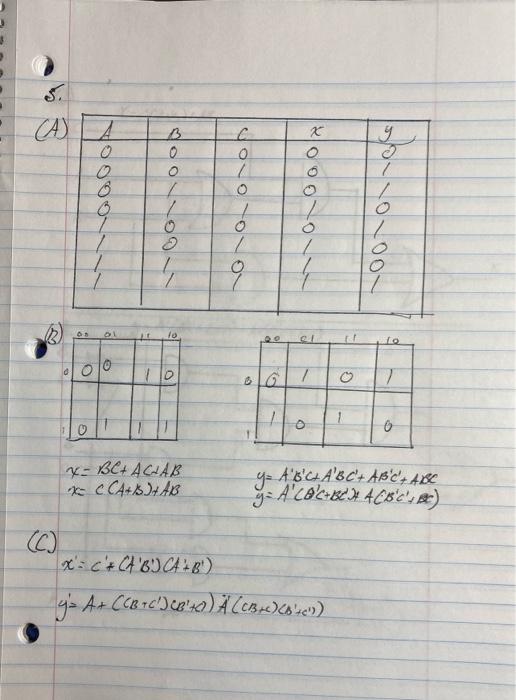 5.
(A) A B C x y
0 0 0 0 0
0 0 1 0 1
0 1 0 0 1
0 1 1 1 0
1 0 0 0 1
1 0 1 1 0
1 1 0 1 0
1 1 1 1 1
(B) 00 01 11 10 00 01 11 10
0 0 0 1 0 0 0 1 0 1
1 0 1 1 1 1 1 0 1 0
x = BC + AC + AB y = A'B'C + A'BC' + AB'C' + ABC
x = C(A+B)+AB y = A'(B'C+BC')+ A(B'C'+BC)
(C)
x' = C' + (A'B')(A'+B')
y' = A + ((B+C')(B'+C)) A'((B+C)(B'+C'))